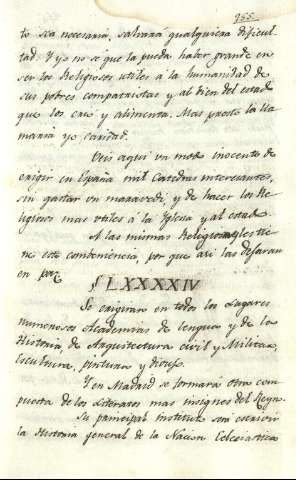 355
to sea necesaria, salvará qualquiera dificul-
tad. Y yo no se que la pueda haber grande en
ser los Religiosos utiles a la humanidad de
sus pobres compatriotas y al bien del estado
que los cria y alimenta. Mas presto la lla-
maria yo caridad.
Veis aqui un modo inocente de
erigir en España mil Catedras interesantes,
sin gastar un maravedi, y de hacer los Re-
ligiosos mas utiles á la Yglesia y al estado.
A las mismas Religiones les tie-
ne esto conbeniencia, por que asi las dejaran
en paz.
§ LXXXXIV
Se erigiran en todos los Lugares
numerosos Academias de lengua y de la
Historia, de Arquitectura civil y Militar,
Escultura, pintura y
Y en Madrid se formará otra com-
puesta de los Literatos mas insignes del Reyno.
Su principal instituto será escrivir
la Historia general de la Nacion Eclesiastica